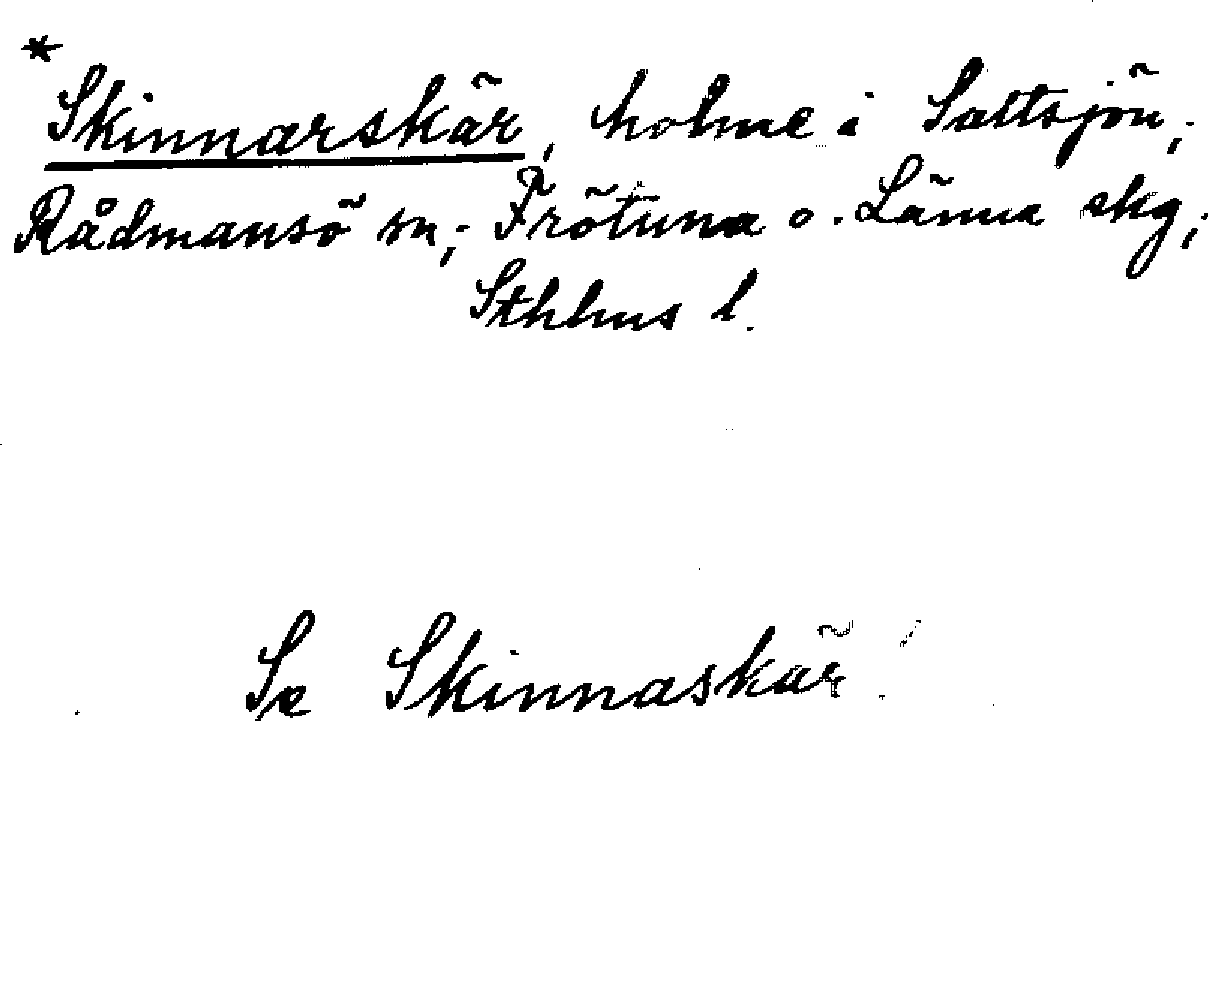 *
Skinnarskär, holme i Saltsjön;
Rådmansö sn; Frötuna o. Länna skg;
Sthlms l.
Se Skinnaskär!